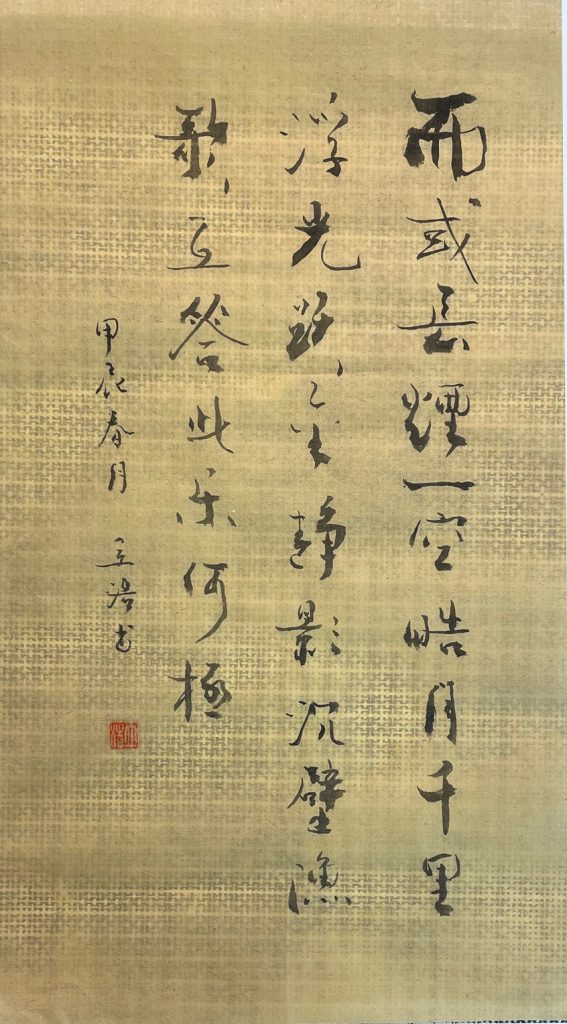 而或長煙一空皓月千里
浮光躍金靜影沉璧漁
歌互答此乐何極
甲辰春月 立浩书
立浩